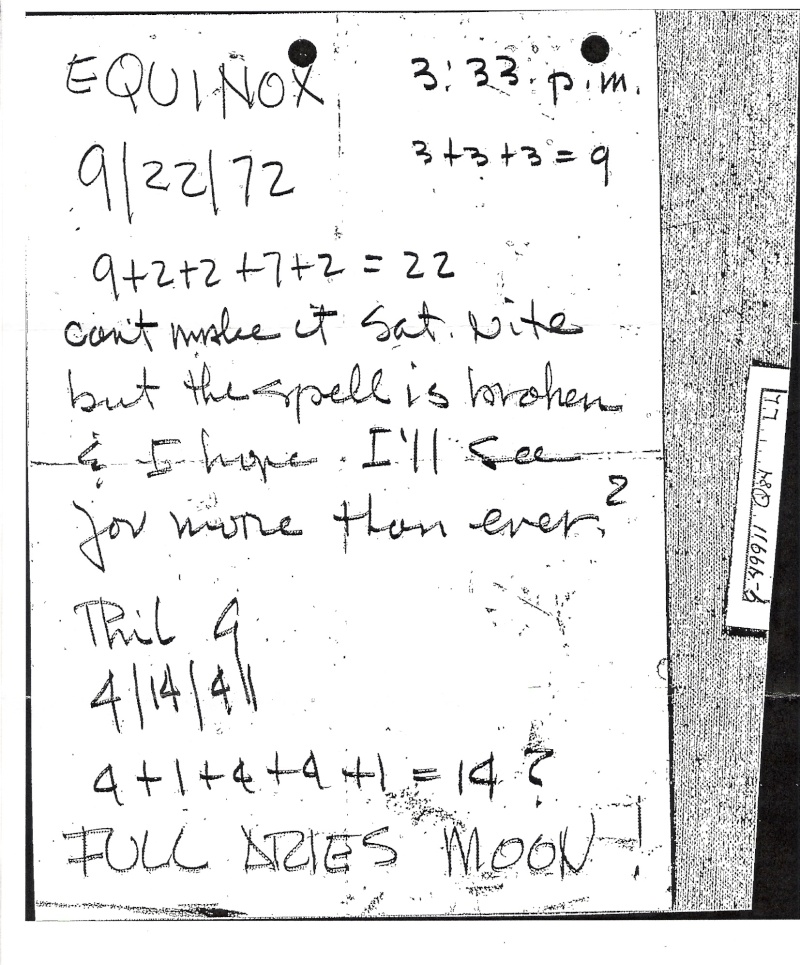 EQUINOX 3:33 p.m.
9/22/72 3+3+3=9
9+2+2+7+2=22
can't make it Sat. Nite
but the spell is broken
& I hope I'll see
you more than ever.²
Phil G
4/14/41
4+1+4+4+1=14?
FULL ARIES MOON!